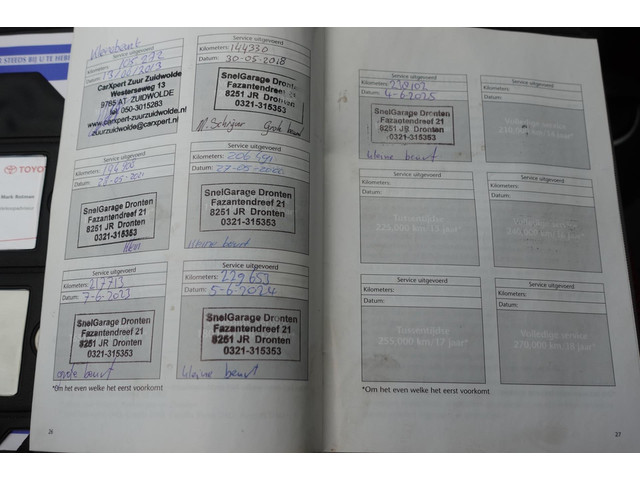 STEEDS BIJ U TE
TOYO
Mark
Service uitgevoerd
CarXpert Zuur Zuidwolde
Westerseweg 13
9785 AT ZUIDWOLDE
tel 050-3015283
zuurzuidwolde@carxpert.nl
Service uitgevoerd
Kilometers: 144330
Datum: 30-05-2018
SnelGarage Dronten
Fazantendreef 21
8251 JR Dronten
0321-315353
Grote beurt
Service uitgevoerd
Kilometers:
Datum:
SnelGarage Dronten
Fazantendreef 21
8251 JR Dronten
0321-315353
Service uitgevoerd
Kilometers:
Datum:
SnelGarage Dronten
Fazantendreef 21
8251 JR Dronten
0321-315353
kleine beurt
Service uitgevoerd
Kilometers: 217713
Datum: 7-6-2023
SnelGarage Dronten
Fazantendreef 21
8251 JR Dronten
0321-315353
grote beurt
Service uitgevoerd
Kilometers: 229653
Datum: 5-6-2024
SnelGarage Dronten
Fazantendreef 21
8251 JR Dronten
0321-315353
kleine beurt
*Om het even welke het eerst voorkomt
26
Service uitgevoerd
Kilometers:
Datum: 4-6-2025
SnelGarage Dronten
Fazantendreef 21
8251 JR Dronten
0321-315353
kleine beurt
Service uitgevoerd
Kilometers:
Datum:
Service uitgevoerd
Kilometers:
Datum:
Tussentijds
225.000 km/15 jaar*
Service uitgevoerd
Kilometers:
Datum:
Service uitgevoerd
Kilometers:
Datum:
Tussentijds
255.000 km/17 jaar*
Service uitgevoerd
Kilometers:
Datum:
Volledige service
270.000 km/18 jaar*
*Om het even welke het eerst voorkomt
27